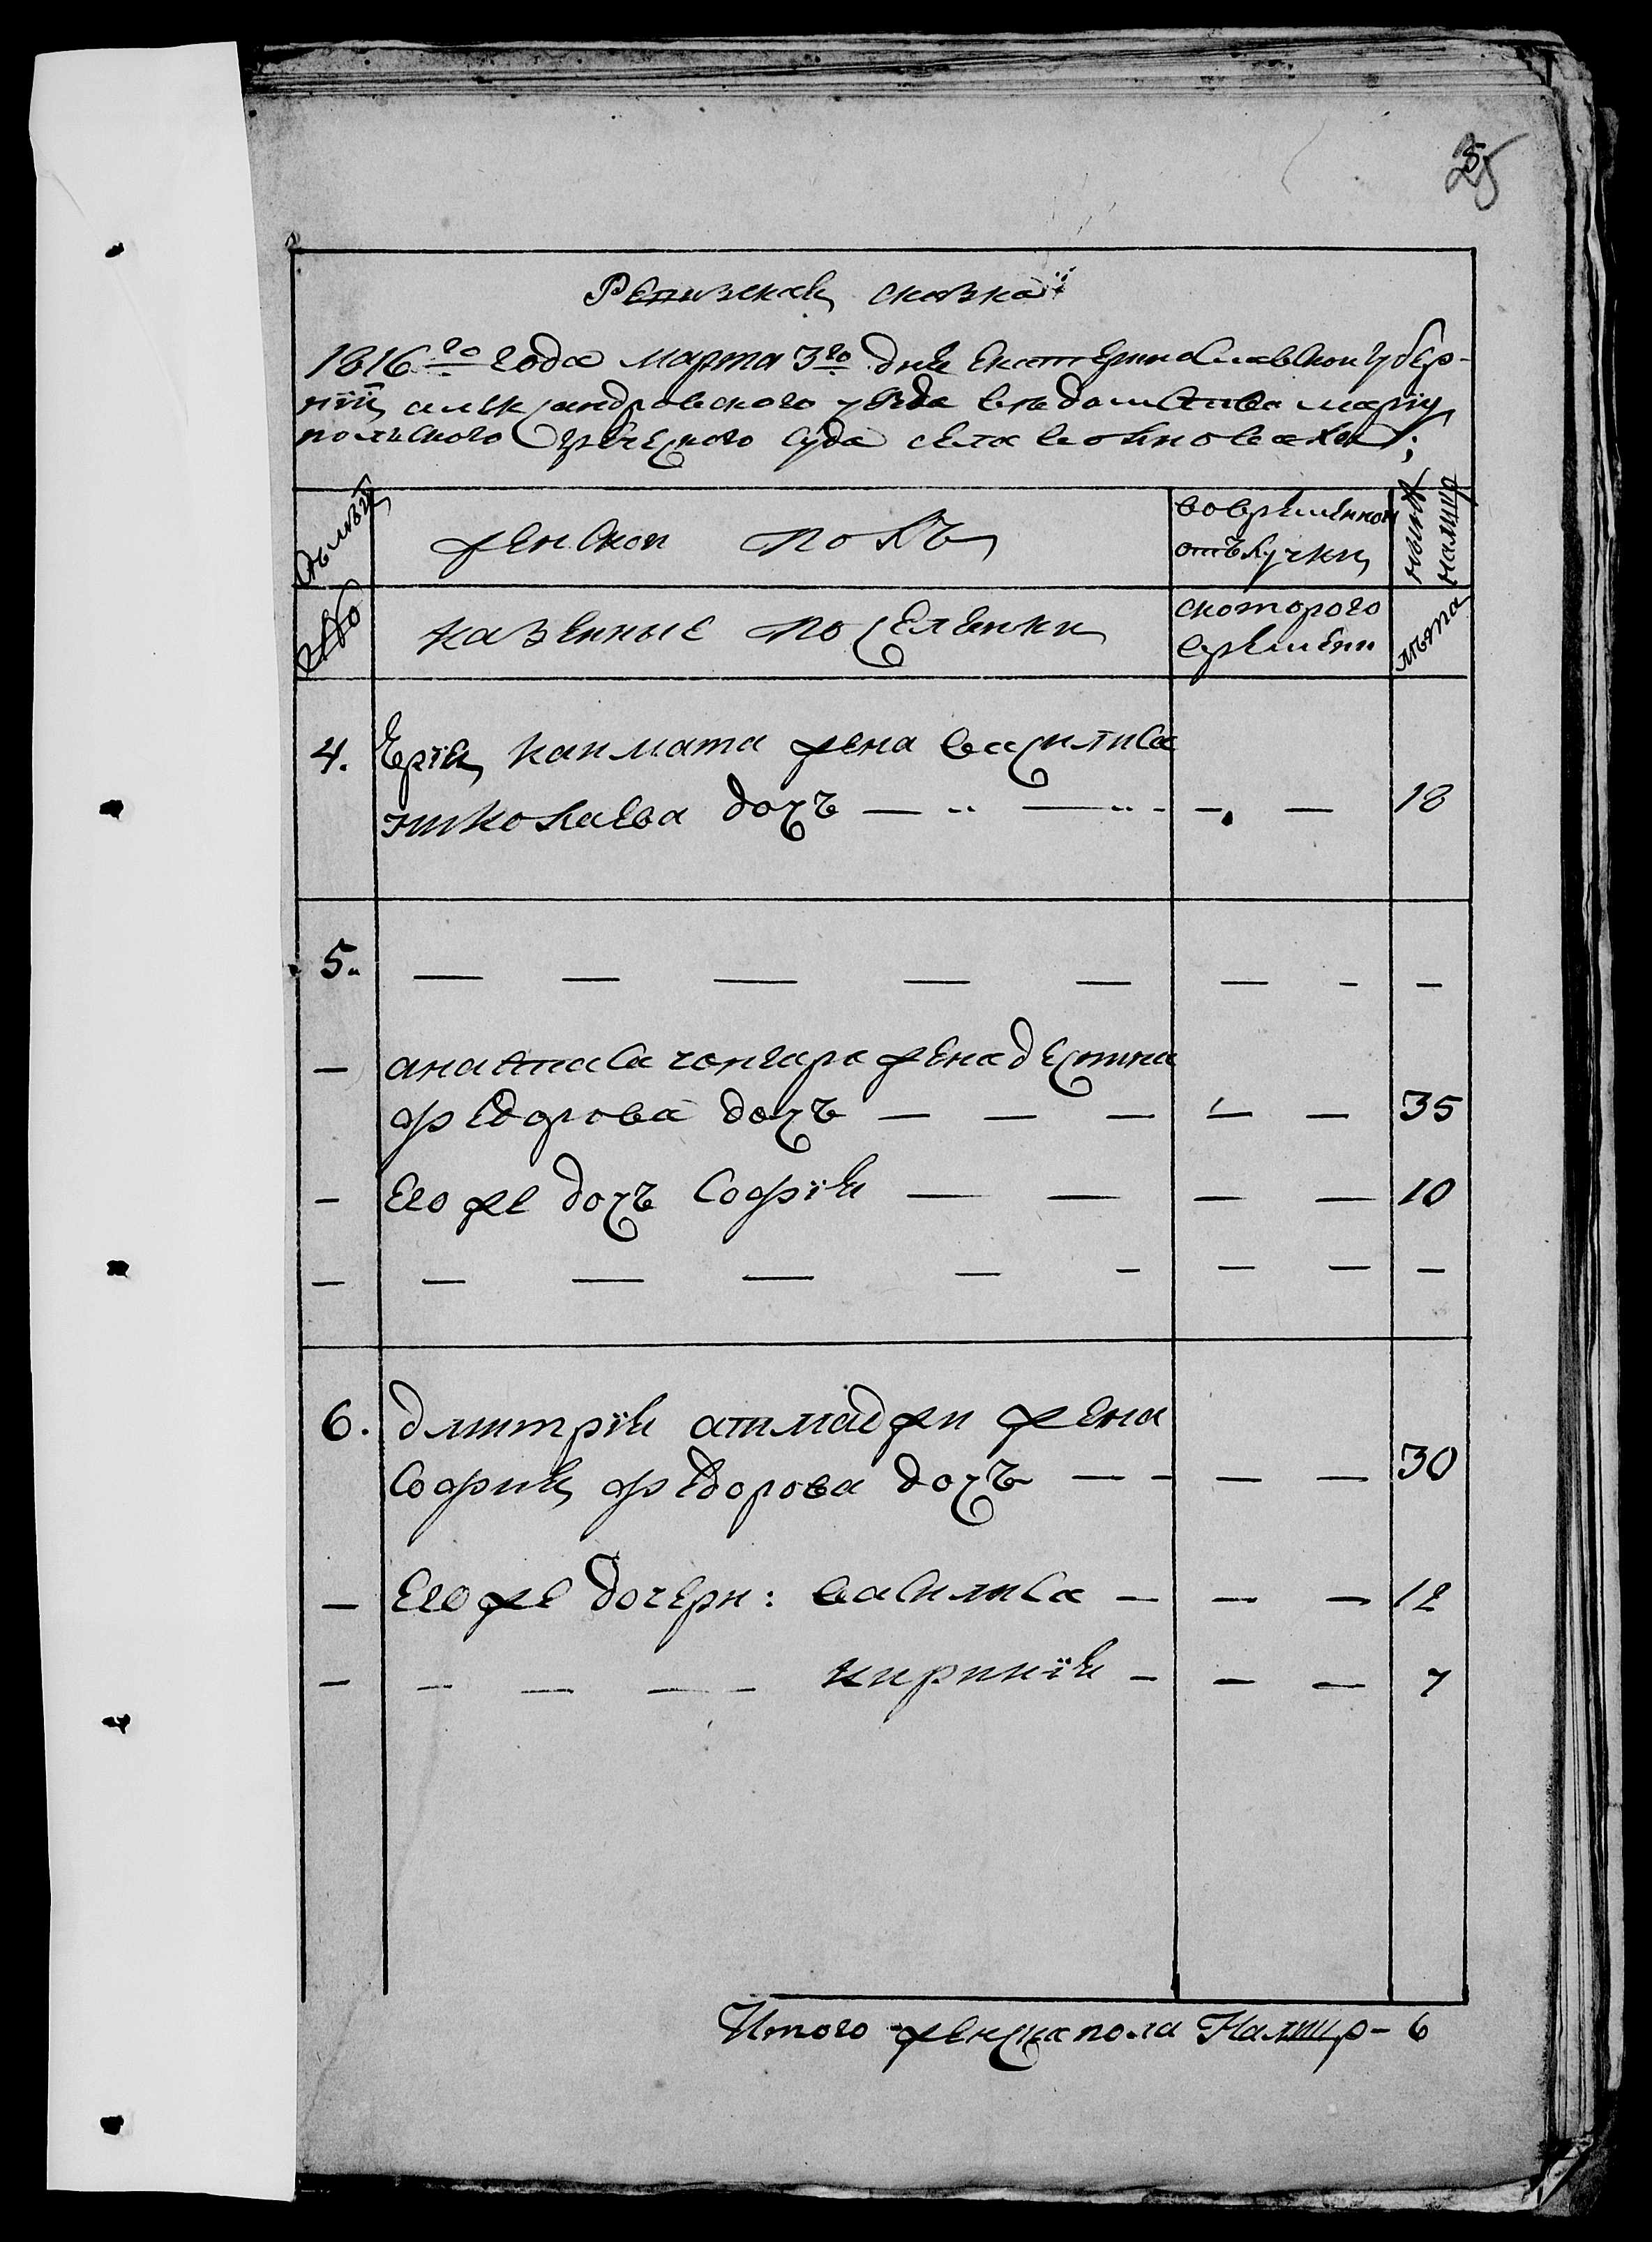 25
Ревизская сказка
1816го года марта 3го дня Екатеринославской губер-
нїи, александровского уезда ведомства марїу
польского греческого суда села волноваха;
семьи женскои полъ вовременнои отълучки ныне на лицо
казенные поселянки скоторого времени лета
4. Ерїя каимата жена василиса
николаева дочъ — — — — — 18
5. — — — — — — — —
— анастаса чонгара жена деспина
федорова дочъ — — — — — 35
— Его же дочъ Софїя — — — — 10
— — — — — — — — —
6. дмитрїя атмаджи жена
София федорова дочъ — — — — 30
— Его же дочери: василиса — — — 12
— — — — — кирикїя — — — 7
Итого женска пола Налицо - 6